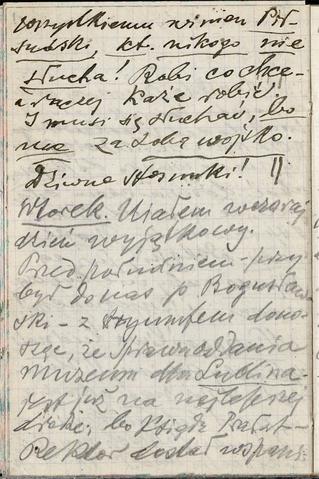 wszystkiemu winien Pił-
sudski, kt. nikogo nie
słucha! Robi co chce –
a raczej każe robić!
I musi się słuchać, bo
ma za sobą wojsko.
Dziwne stosunki! ||
Wtorek. Miałem wczoraj
dzień wyjątkowy.
Przed południem – przy-
był do nas p. Bogusław-
ski – z tryumfem dono-
sząc, że sprawa oddania
muzeum dla Lublina –
jest już na najlepszej
drodze, bo Ksiądz Prałat –
Rektor dostał wspani-